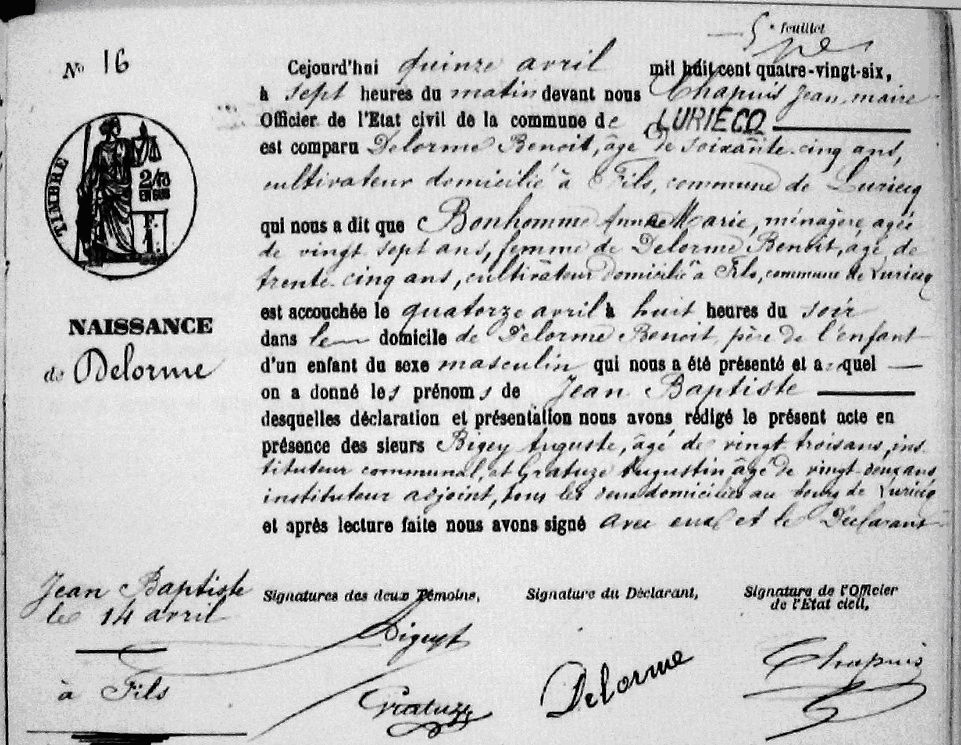 5e feuillet
No 16
Cejourd'hui quinze avril mil huit cent quatre-vingt-six,
à sept heures du matin devant nous Chapuis Jean, maire
Officier de l'Etat civil de la commune de LURIECQ
est comparu Delorme Benoit, âgé de soixante-cinq ans,
cultivateur domicilié à Fils, commune de Luriecq
qui nous a dit que Bonhomme Anne Marie, ménagère, agée
de vingt sept ans, femme de Delorme Benoit, agé de
trente-cinq ans, cultivateur domicilié à Fils, commune de Luriecq
est accouchée le quatorze avril à huit heures du soir
dans le domicile de Delorme Benoit, père de l'enfant
d'un enfant du sexe masculin qui nous a été présenté et auquel
on a donné les prénoms de Jean Baptiste
desquelles déclaration et présentation nous avons rédigé le présent acte en
présence des sieurs Bigey Auguste, âgé de vingt trois ans, ins-
tituteur communal, et Gratuze Augustin agé de vingt-deux ans
instituteur adjoint, tous les deux domiciliés au bourg de Luriecq
et après lecture faite nous avons signé avec eux et le Déclarant
TIMBRE
2/10
EN SUS
F.
1.
NAISSANCE
de Delorme
Jean Baptiste
le 14 avril
à Fils
Signatures des deux Témoins,
Signature du Déclarant,
Signature de l'Officier
de l'Etat civil,
Gratuze
Delorme
Chapuis